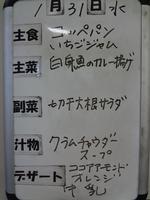 1月31日水
主食 コッペパン
いちごジャム
主菜 白身魚のカレー揚げ
副菜 切干大根サラダ
汁物 クラムチャウダー
スープ
デザート ココアアーモンド
オレンジ
牛乳